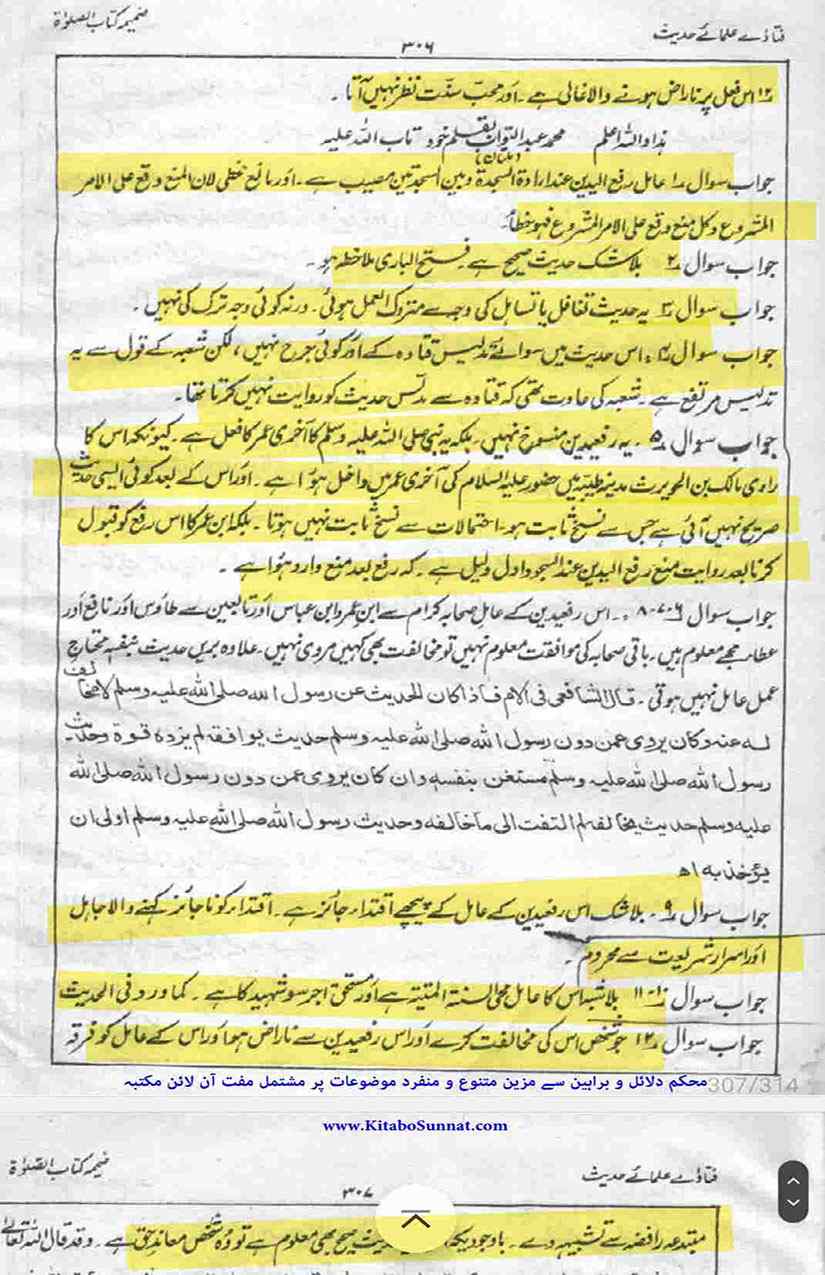 فتاوٰے علمائے حدیث
ضمیمہ کتاب الصلوٰة
۳۰۶
۱۲ اس فعل پر ناراض ہونے والا غالی ہے۔ اور محب سنّت نظر نہیں آتا۔
ہذا واللہ اعلم محمد عبد التواب بقلم خود تاب اللہ علیہ
(ملتان)
جواب سوال ۱ عامل رفع الیدین عند ارادة السجدة وبین السجدتین مصیب ہے۔ اور مانع مخطی لان المنع وقع علی الامر
المشروع وکل منع وقع علی الامر المشروع فهو خطأ۔
جواب سوال ۲ بلاشک حدیث صحیح ہے۔ فتح الباری ملاحظہ ہو۔
جواب سوال ۳ یہ حدیث تغافل یا تساہل کی وجہ سے متروک العمل ہوئی۔ ورنہ کوئی وجہ ترک کی نہیں۔
جواب سوال ۴ اس حدیث میں سوائے تدلیس قتادہ کے اور کوئی جرح نہیں، لکن شعبہ کے قول سے یہ
تدلیس مرتفع ہے۔ شعبہ کی عادت تھی کہ قتادہ سے مدلّس حدیث کو روایت نہیں کرتا تھا۔
جواب سوال ۵۔ یہ رفعیدین منسوخ نہیں۔ بلکہ یہ نبی صلی اللہ علیہ وسلم کا آخری عمر کا فعل ہے۔ کیونکہ اس کا
راوی مالک بن الحویرث مدینہ طیبہ میں حضور علیہ السلام کی آخری عمر میں داخل ہوا ہے۔ اور اس کے بعد کوئی ایسی حدیث
صریح نہیں آئی ہے جس سے نسخ ثابت ہو۔ احتمالات سے نسخ ثابت نہیں ہوتا۔ بلکہ ابن عمر کا اس رفع کو قبول
کرنا بعد روایت منع رفع الیدین عند السجود اول دلیل ہے۔ کہ رفع بعد منع وارد ہوا ہے۔
جواب سوال ۶-۷-۸۔ اس رفعیدین کے عامل صحابہ کرام سے ابن عمر و ابن عباس اور تابعین سے طاؤس اور نافع اور
عطار مجھے معلوم ہیں۔ باقی صحابہ کی موافقت معلوم نہیں تو مخالفت بھی کہیں مروی نہیں۔ علاوہ بریں حدیث بنفسہ محتاج
عمل عامل نہیں ہوتی۔ قال الشافعی فی الام فاذا کان الحدیث عن رسول اللہ صلی اللہ علیہ وسلم لا مخالف
لہ عنہ وکان یروی عمن دون رسول اللہ صلی اللہ علیہ وسلم حدیث یوافقہ لم یزدہ قوة وحدیث
رسول اللہ صلی اللہ علیہ وسلم مستغن بنفسہ وان کان یروی عمن دون رسول اللہ صلی اللہ
علیہ وسلم حدیث یخالفہ لم التفت الی ما خالفہ وحدیث رسول اللہ صلی اللہ علیہ وسلم اولی ان
یؤخذ بہ اھ
جواب سوال ۹۔ بلاشک اس رفعیدین کے عامل کے پیچھے اقتدار جائز ہے۔ اقتدار کو ناجائز کہنے والا جاہل
اور اسرار شریعت سے محروم۔
جواب سوال ۱۰-۱۱ بلاشبہ اس کا عامل محی السنۃ المیتۃ ہے اور مستحق اجر سو شہید کا ہے۔ کما ورد فی الحدیث
جواب سوال ۱۲ جو شخص اس کی مخالفت کرے اور اس رفعیدین سے ناراض ہو اور اس کے عامل کو فرقہ
محکم دلائل و براہین سے مزین متنوع و منفرد موضوعات پر مشتمل مفت آن لائن مکتبہ
307/314
www.KitaboSunnat.com
فتاوٰے علمائے حدیث
ضمیمہ کتاب الصلوٰة
۳۰۷
مبتدعہ رافضہ سے تشبیہہ دے۔ باوجودیکہ حدیث صحیح بھی معلوم ہے تو وہ شخص معاند حق ہے۔ وقد قال اللہ تعالیٰ